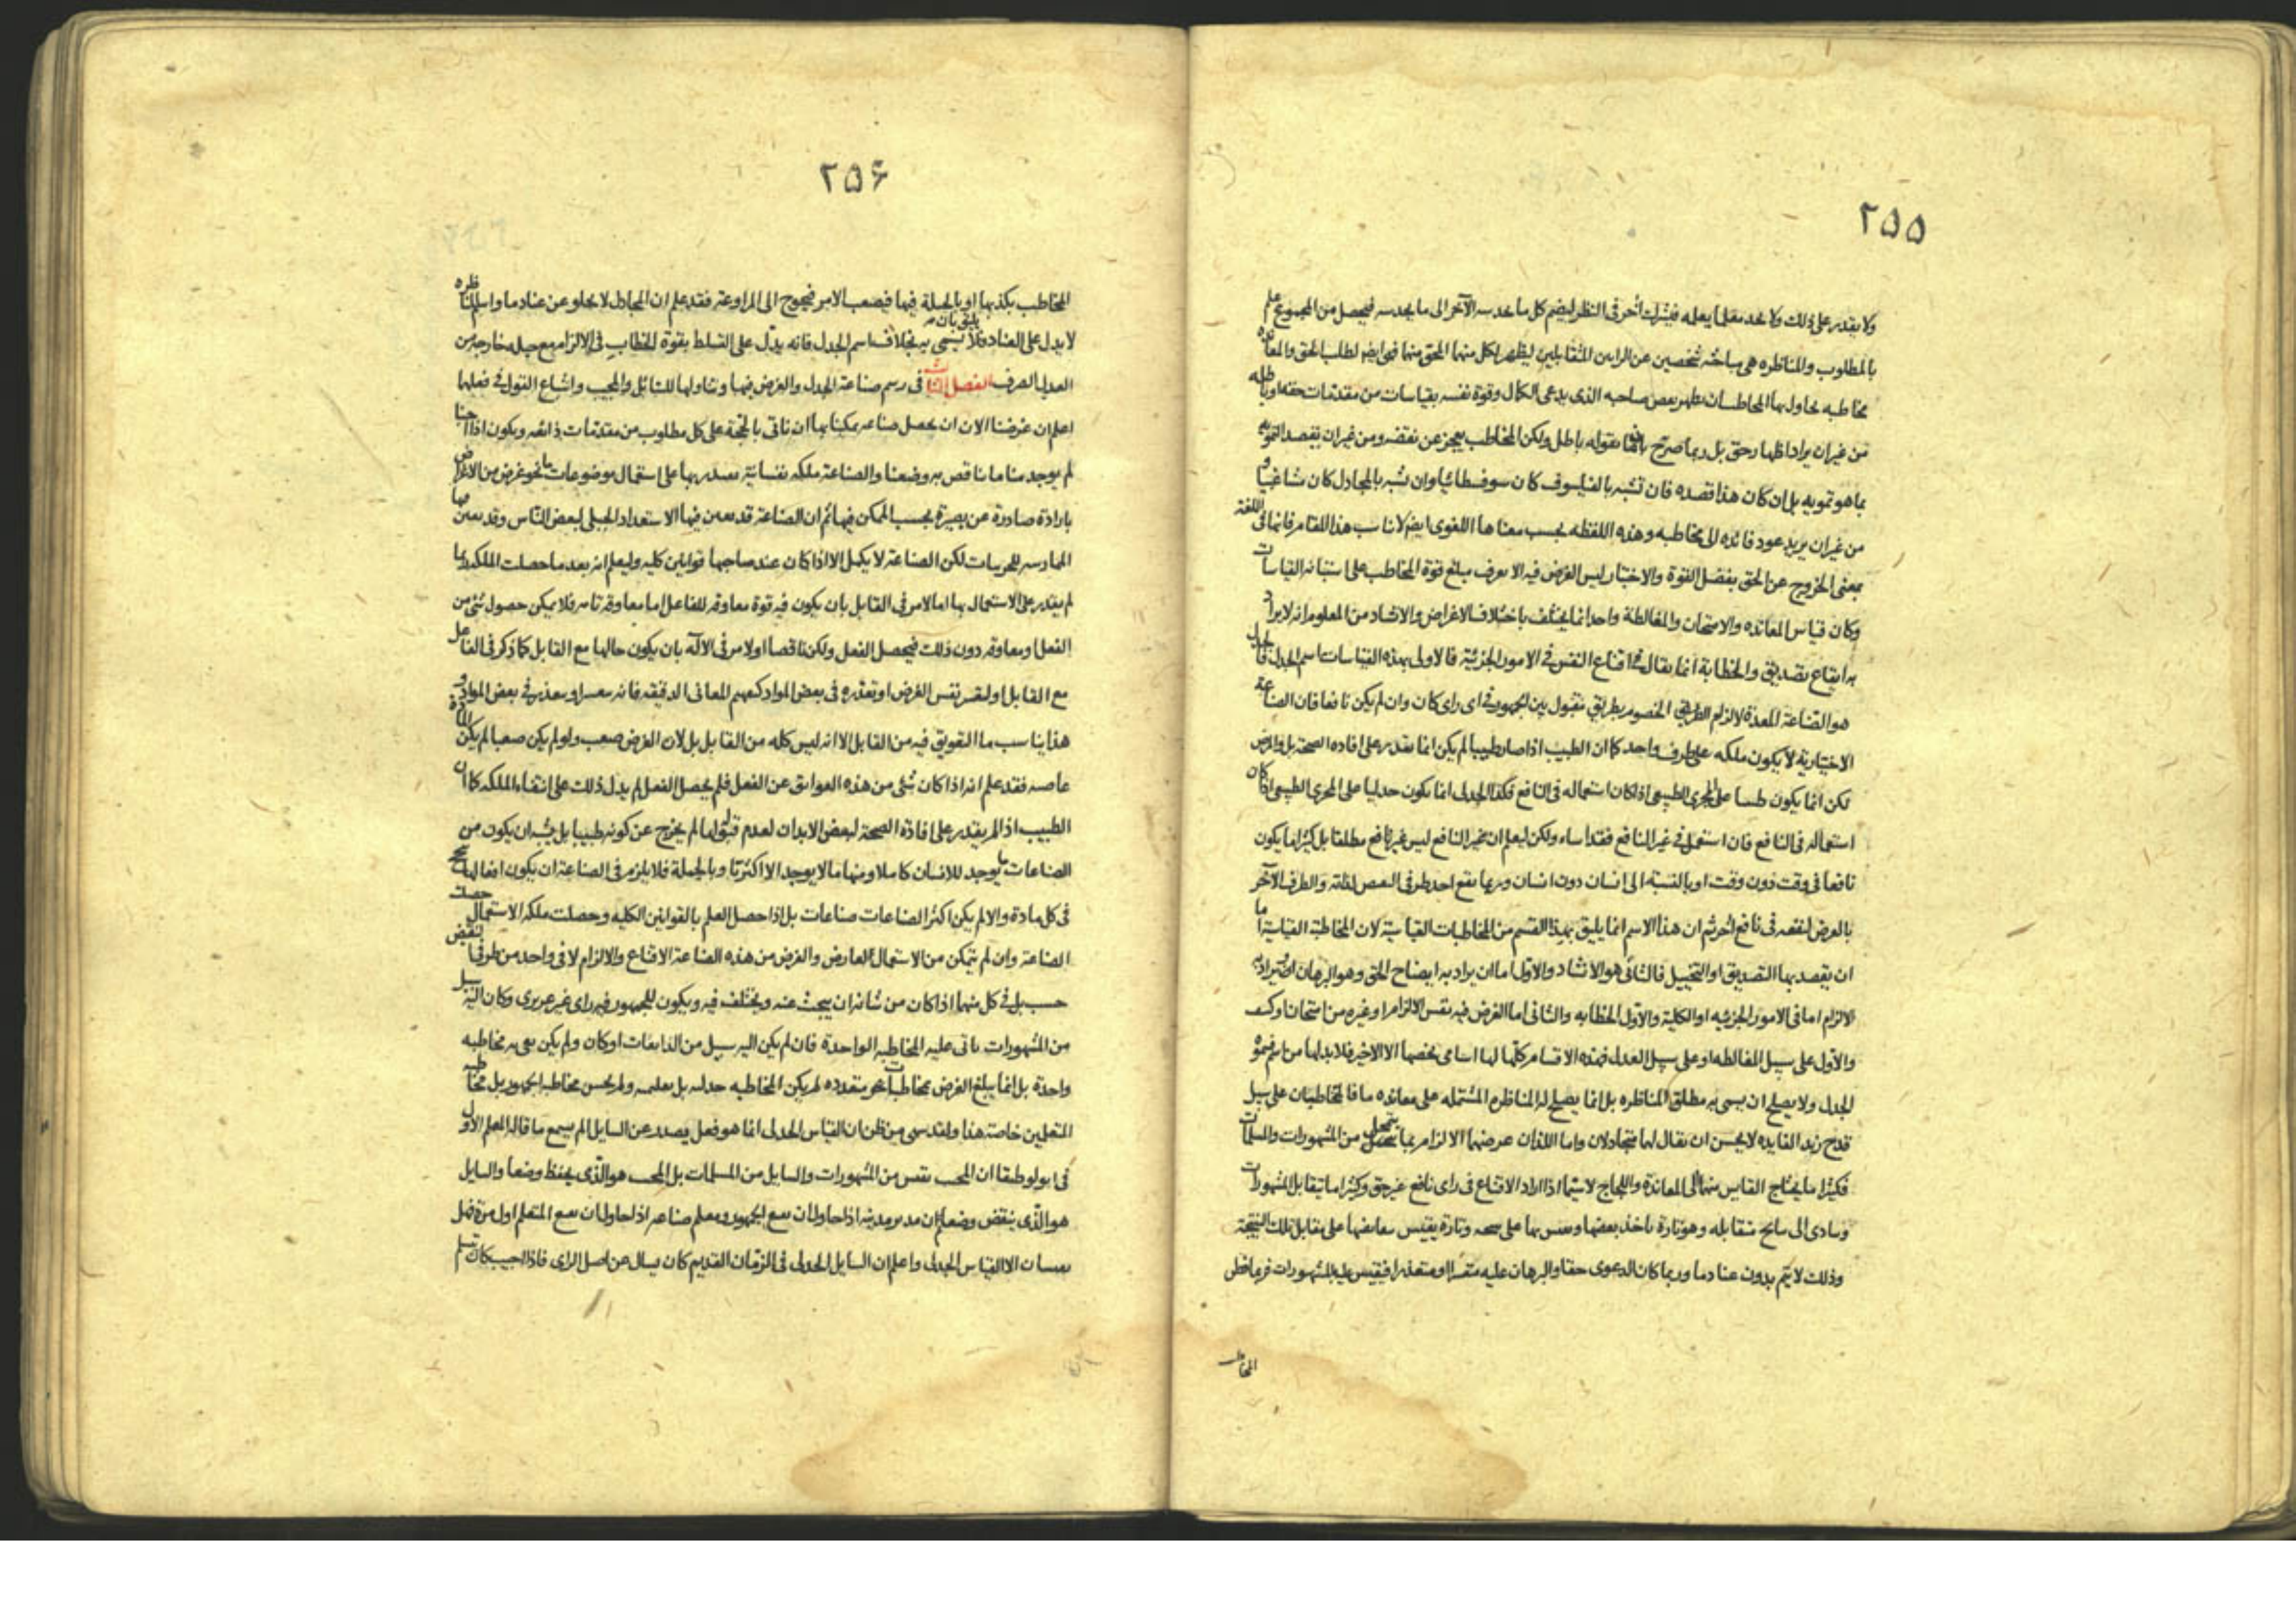 ٢٥٥
ولا يقدر على ذلك ولا يجد معلما يعلمه فيشرك آخر فى النظر ليضم كل ما يحدسه الآخر الى ما يحدسه فيحصل من المجموع علم
بالمطلوب والمناظره هى مباحثه شخصين عن الرايين المتقابلين ليظهر لكل منهما المحق منهما فهى ايضم لطلب الحق والمعانده
مخاطبه يحاول بها المخاطب ان يظهر نقص صاحبه الذى يدعى الكمال وقوة نفسه بقياسات من مقدمات حقه او باطله
من غير ان يراد اظهار حق بل ربما صرح بان ما يقوله باطل ولكن المخاطب يعجز عن نقضه ومن غير ان يقصد التمويه
بما هو تمويه بل ان كان هذا قصده فان تشبه بالفيلسوف كان سوفسطائيا وان تشبه بالمجادل كان مشاغبيا
من غير ان يريد عود فائده الى مخاطبه وهذه اللفظه بحسب معناها اللغوى ايضم لا تناسب هذا المقام فانها فى اللغة
بمعنى الخروج عن الحق بفضل القوة والاختبار ليس الغرض فيه الا تعرف مبلغ قوة المخاطب على استبانه القياسات
وكان قياس المعانده والامتحان والمغالطة واحد انما يختلف باختلاف الاغراض والارشاد من المعلوم انه لا يراد
به ايقاع تصديق والخطابة انما يقال فى اقناع النفس فى الامور الجزئية فالاولى بهذه القياسات اسم الجدل فالجدل
هو الصناعة المعدة لالزام الخصوم بطريق مقبول بين الجمهور فى اى راى كان وان لم يكن نافعا فان الصناعة
الاختيارية لا يكون ملكه على طرف واحد كما ان الطبيب اذا صار طبيبا لم يكن انما يقدر على افاده الصحة بل والمرض
لكن انما يكون طبيبا على المجرى الطبيعى اذا كان استعماله فى النافع فكذا الجدلى انما يكون جدليا على المجرى الطبيعى اذا كان
استعماله فى النافع فان استعمل فى غير النافع فقد اساء ولكن ليعلم ان غير النافع ليس غير نافع مطلقا بل كثيرا ما يكون
نافعا فى وقت دون وقت او بالنسبة الى انسان دون انسان وربما نفع احد طرفى النقيض لذاته والطرف الآخر
بالعرض لنفعه فى نافع آخر ثم ان هذا الاسم انما يليق بهذا القسم من المخاطبات القياسية لان المخاطبة القياسية اما
ان يقصد بها التصديق او التخييل فالثانى هو الانشاد والاول اما ان يراد به ايضاح الحق وهو البرهان او يراد به
الالزام اما فى الامور الجزئيه او الكلية والاول الخطابه والثانى اما الغرض فيه نفس الالزام او غيره من امتحان او كشف
والاول على سبيل المغالطه او على سبيل العدل فهذه الاقسام كلها لها اسامى تخصها الا الاخير فلا بد لها من اسم فهو
الجدل ولا يصلح ان يسمى به مطلق المناظره بل انما يصلح له المناظره المشتمله على معانده ما فالمخاطبان على سبيل
قدح زند الفايده لا يحسن ان يقال لهما متجادلان واما اللذان غرضهما الالزام بما يتمحل من المشهورات والمسلمات
فكثيرا ما يحتاج القايس منهما الى المعاندة واللجاج لا سيما اذا اراد الاقناع فى راى نافع غير حق وكثيرا ما يتقابل المشهورات
وتتادى الى نتايج متقابله وهو تارة ياخذ بعضها ويقيس بها على نتيجه وتارة يقيس ببعضها على مقابل تلك النتيجة
وذلك لا يتم بدون عناد ما وربما كان الدعوى حقا والبرهان عليه متعسرا او متعذرا فيقيس عليه بالمشهورات فربما فطن
المخاطب
٢٥۶
المخاطب بكذبها او بالحيلة فيها فيصعب الامر فيحوج الى المراوغة فقد علم ان المجادل لا يخلو عن عناد ما واسم المناظره
لا يدل على العناد فلا يليق بان يسمى به بخلاف اسم الجدل فانه يدل على التسلط بقوة الخطاب فى الالزام مع حيله خارجه من
العدل الصرف الفصل الثانى فى رسم صناعة الجدل والغرض فيها وتناولها للسائل والمجيب واشباع القول فى فعلها
اعلم ان غرضنا الان ان نحصل صناعه يمكننا بها ان ناتى بالحجة على كل مطلوب من مقدمات ذائعه ويكون اذا اجبنا
لم يوجد منا ما يناقض به وضعنا والصناعة ملكه نفسانية يقتدر بها على استعمال موضوعات ما نحو غرض من الاغراض
بارادة صادرة عن بصيرة بحسب الممكن فيها ثم ان الصناعة قد يعين فيها الاستعداد الجبلى لبعض الناس وقد يعين فيها
الممارسه للجزئيات لكن الصناعة لا يكمل الا اذا كان عند صاحبها قوانين كليه وليعلم انه بعد ما حصلت الملكه ربما
لم يقدر على الاستعمال بها اما لامر فى القابل بان يكون فيه قوة معاوقه للفاعل اما معاوقه تامه فلا يمكن حصول شئ من
الفعل او معاوقه دون ذلك فيحصل الفعل ولكن ناقصا او لامر فى الآلة بان يكون حالها مع القابل كما ذكر فى الفاعل
مع القابل او لتعسر نفس الغرض او تعذره فى بعض المواد كتفهيم المعانى الدقيقه فانه يتعسر او يتعذر فى بعض المواد و
هذا يناسب ما التعويق فيه من القابل الا انه ليس كله من القابل بل لان الغرض صعب ولو لم يكن صعبا لم يكن المادة
عاصيه فقد علم انه اذا كان شئ من هذه العوائق عن الفعل فلم يحصل الفعل لم يدل ذلك على انتفاء الملكه كما ان
الطبيب اذا لم يقدر على افادة الصحة لبعض الابدان لعدم قبولها لم يخرج عن كونه طبيبا بل يشبه ان يكون من
الصناعات ما يوجد للانسان كاملا ومنها ما لا يوجد الا اكثريا وبالجملة فلا يلزم فى الصناعة ان يكون افعالها
فى كل مادة والا لم يكن اكثر الصناعات صناعات بل اذا حصل العلم بالقوانين الكليه وحصلت ملكه الاستعمال حصلت
الصناعة وان لم يتمكن من الاستعمال لعارض والغرض من هذه الصناعة الاقناع والالزام لا فى واحد من طرفى النقيض
حسب بل فى كل منهما اذا كان من شانه ان يبحث عنه ويختلف فيه ويكون للجمهور فيه راى غير غريزى وكان اليه سبيل
من المشهورات ياتى عليه المخاطبه الواحدة فان لم يكن اليه سبيل من الذايعات او كان ولم يكن يفى به مخاطبه
واحدة بل انما يبلغ الغرض بمخاطبات متعدده لم يكن المخاطبه جدليه بل تعليميه ولم يحسن مخاطبه الجمهور بل مخاطبه
المتعلمين خاصة هذا ولقد سهى من ظن ان القياس الجدلى انما هو فعل يصدر عن السايل الم يسمع ما قاله المعلم الاول
فى ابولوطيقا ان المجيب يقيس من المشهورات والسايل من المسلمات بل المجيب هو الذى يحفظ وضعا والسايل
هو الذى ينقض وضعا فان مدبر مدينه اذا حاول ان يقنع الجمهور ومعلم صناعه اذا حاول ان يقنع المتعلم اول مرة فهل
يقيسان الا القياس الجدلى واعلم ان السايل الجدلى فى الزمان القديم كان يسال عن اصل الراى فاذا اجيب كان يتسلم